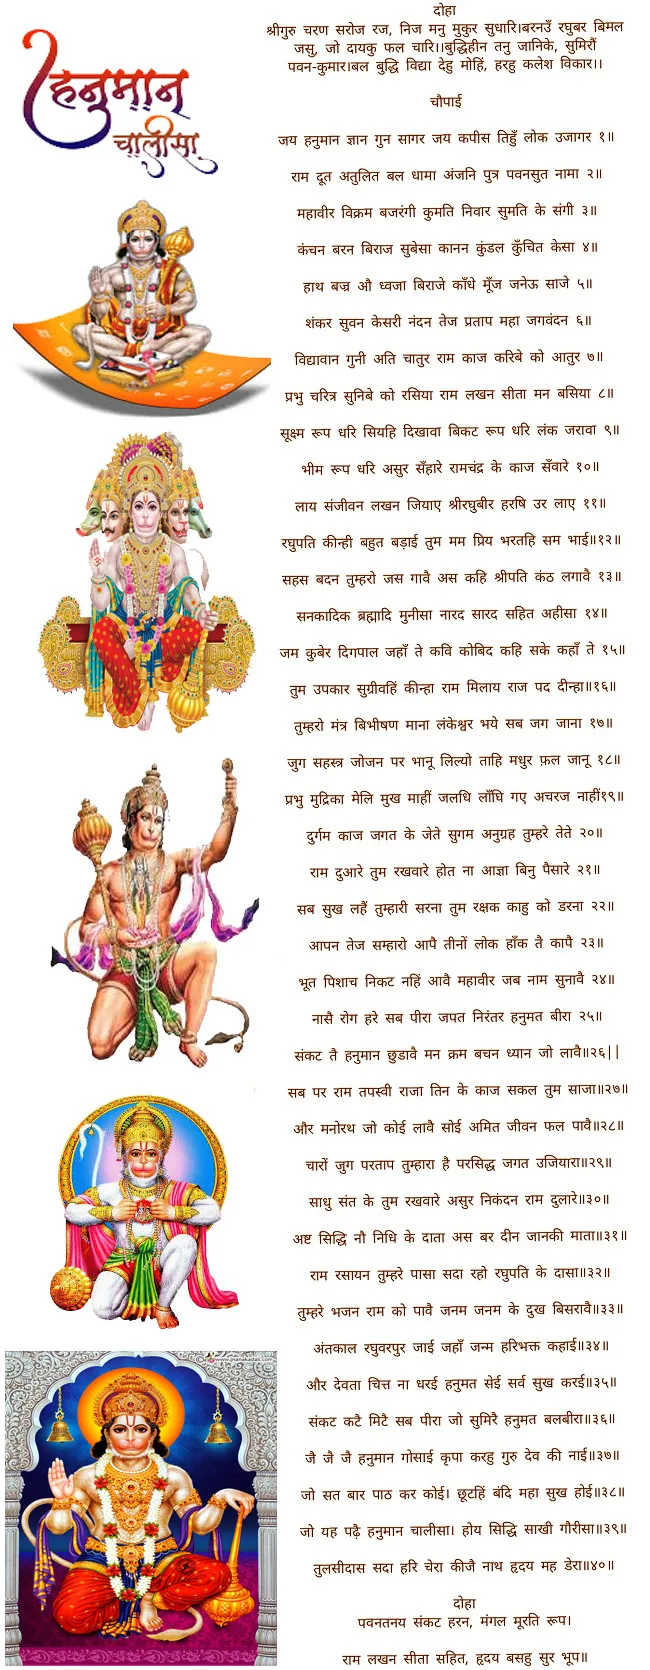 हनुमान
चालीसा
दोहा
श्रीगुरु चरण सरोज रज, निज मनु मुकुर सुधारि।बरनउँ रघुबर बिमल
जसु, जो दायकु फल चारि।।बुद्धिहीन तनु जानिके, सुमिरौं
पवन-कुमार।बल बुद्धि विद्या देहु मोहिं, हरहु कलेश विकार।।
चौपाई
जय हनुमान ज्ञान गुन सागर जय कपीस तिहुँ लोक उजागर १॥
राम दूत अतुलित बल धामा अंजनि पुत्र पवनसुत नामा २॥
महावीर विक्रम बजरंगी कुमति निवार सुमति के संगी ३॥
कंचन बरन बिराज सुबेसा कानन कुंडल कुँचित केसा ४॥
हाथ बज्र औ ध्वजा बिराजे काँधे मूँज जनेऊ साजे ५॥
शंकर सुवन केसरी नंदन तेज प्रताप महा जगवंदन ६॥
विद्यावान गुनी अति चातुर राम काज करिबे को आतुर ७॥
प्रभु चरित्र सुनिबे को रसिया राम लखन सीता मन बसिया ८॥
सूक्ष्म रूप धरि सियहि दिखावा बिकट रूप धरि लंक जरावा ९॥
भीम रूप धरि असुर सँहारे रामचंद्र के काज सँवारे १०॥
लाय संजीवन लखन जियाए श्रीरघुबीर हरषि उर लाए ११॥
रघुपति कीन्ही बहुत बड़ाई तुम मम प्रिय भरतहि सम भाई॥१२॥
सहस बदन तुम्हरो जस गावै अस कहि श्रीपति कंठ लगावै १३॥
सनकादिक ब्रह्मादि मुनीसा नारद सारद सहित अहीसा १४॥
जम कुबेर दिगपाल जहाँ ते कवि कोबिद कहि सके कहाँ ते १५॥
तुम उपकार सुग्रीवहिं कीन्हा राम मिलाय राज पद दीन्हा॥१६॥
तुम्हरो मंत्र बिभीषण माना लंकेश्वर भये सब जग जाना १७॥
जुग सहस्त्र जोजन पर भानू लिल्यो ताहि मधुर फ़ल जानू १८॥
प्रभु मुद्रिका मेलि मुख माहीं जलधि लाँघि गए अचरज नाहीं१९॥
दुर्गम काज जगत के जेते सुगम अनुग्रह तुम्हरे तेते २०॥
राम दुआरे तुम रखवारे होत ना आज्ञा बिनु पैसारे २१॥
सब सुख लहैं तुम्हारी सरना तुम रक्षक काहु को डरना २२॥
आपन तेज सम्हारो आपै तीनों लोक हाँक तै कापै २३॥
भूत पिशाच निकट नहिं आवै महावीर जब नाम सुनावै २४॥
नासै रोग हरे सब पीरा जपत निरंतर हनुमत बीरा २५॥
संकट तै हनुमान छुडावै मन क्रम बचन ध्यान जो लावै॥२६||
सब पर राम तपस्वी राजा तिन के काज सकल तुम साजा॥२७॥
और मनोरथ जो कोई लावै सोई अमित जीवन फल पावै॥२८॥
चारों जुग परताप तुम्हारा है परसिद्ध जगत उजियारा॥२९॥
साधु संत के तुम रखवारे असुर निकंदन राम दुलारे॥३०॥
अष्ट सिद्धि नौ निधि के दाता अस बर दीन जानकी माता॥३१॥
राम रसायन तुम्हरे पासा सदा रहो रघुपति के दासा॥३२॥
तुम्हरे भजन राम को पावै जनम जनम के दुख बिसरावै॥३३॥
अंतकाल रघुवरपुर जाई जहाँ जन्म हरिभक्त कहाई॥३४॥
और देवता चित्त ना धरई हनुमत सेई सर्व सुख करई॥३५॥
संकट कटै मिटै सब पीरा जो सुमिरै हनुमत बलबीरा॥३६॥
जै जै जै हनुमान गोसाई कृपा करहु गुरु देव की नाई॥३७॥
जो सत बार पाठ कर कोई। छूटहिं बंदि महा सुख होई॥३८॥
जो यह पढ़ै हनुमान चालीसा। होय सिद्धि साखी गौरीसा॥३९॥
तुलसीदास सदा हरि चेरा कीजै नाथ हृदय मह डेरा॥४०॥
दोहा
पवनतनय संकट हरन, मंगल मूरति रूप।
राम लखन सीता सहित, हृदय बसहु सुर भूप॥